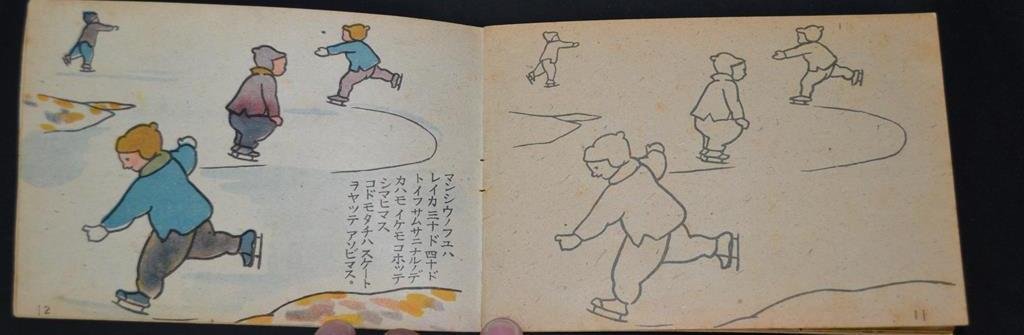 マンシウノフユハ
レイカ三十ド四十ド
トイフサムサニナルノデ
カハモイケモコホッテ
シマヒマス
コドモタチハスケート
ヲヤッテアソビマス。
12
11